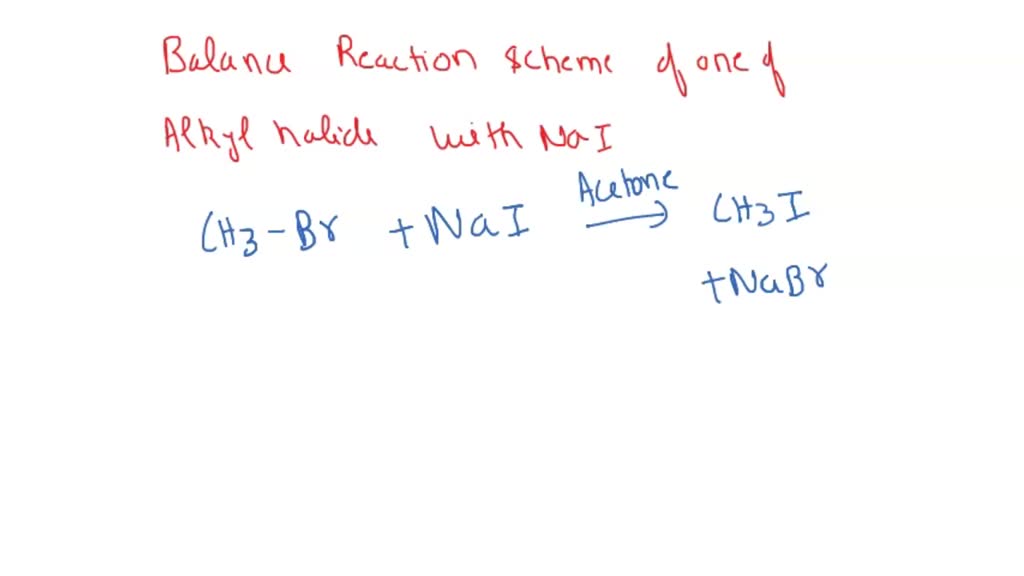 Balance Reaction Scheme of one of
Alkyl halide with NaI
Acetone
CH3-Br + NaI → CH3I
+NaBr